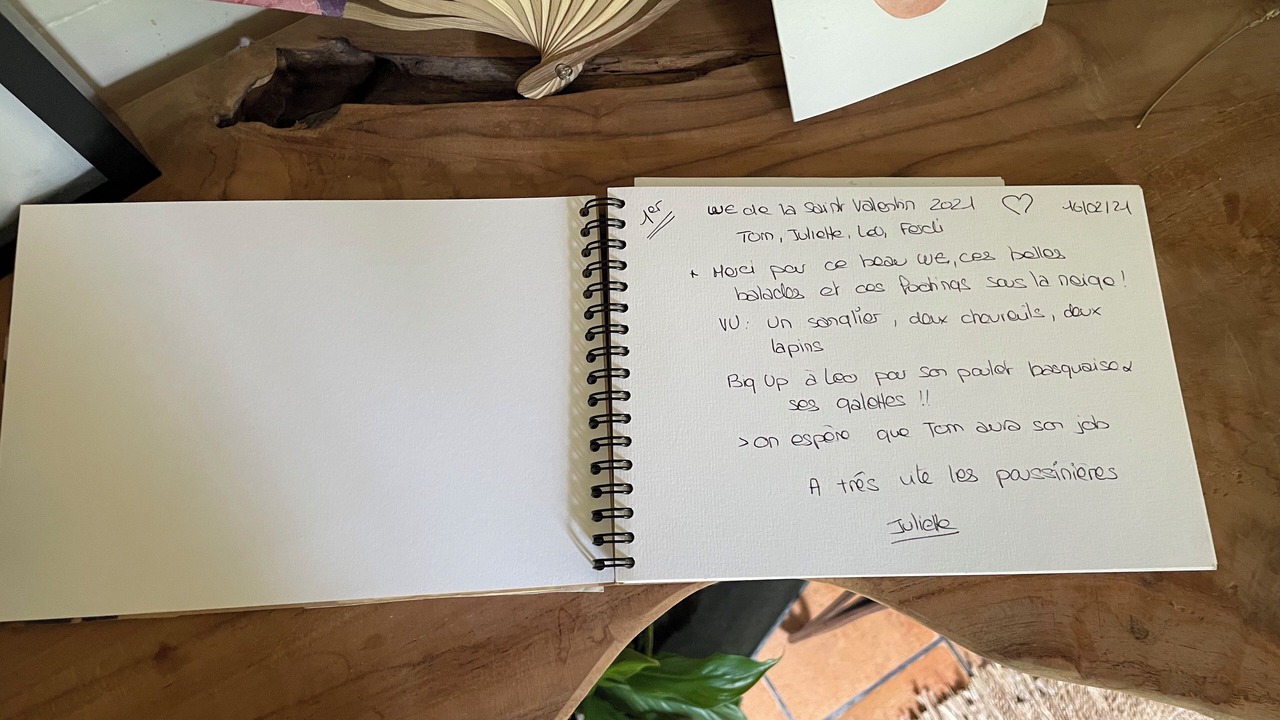 1er
WE de la Saint Valentin 2021 ♡ 16/02/21
Tom, Juliette, Léo, Ferdi
* Merci pour ce beau WE, ces belles
balades et ces footings sous la neige !
VU : un sanglier, deux chevreuils, deux
lapins
Big Up à Léo pour son poulet basquaise &
ses galettes !!
> on espère que Tom aura son job
A très vite les poussinières
Juliette